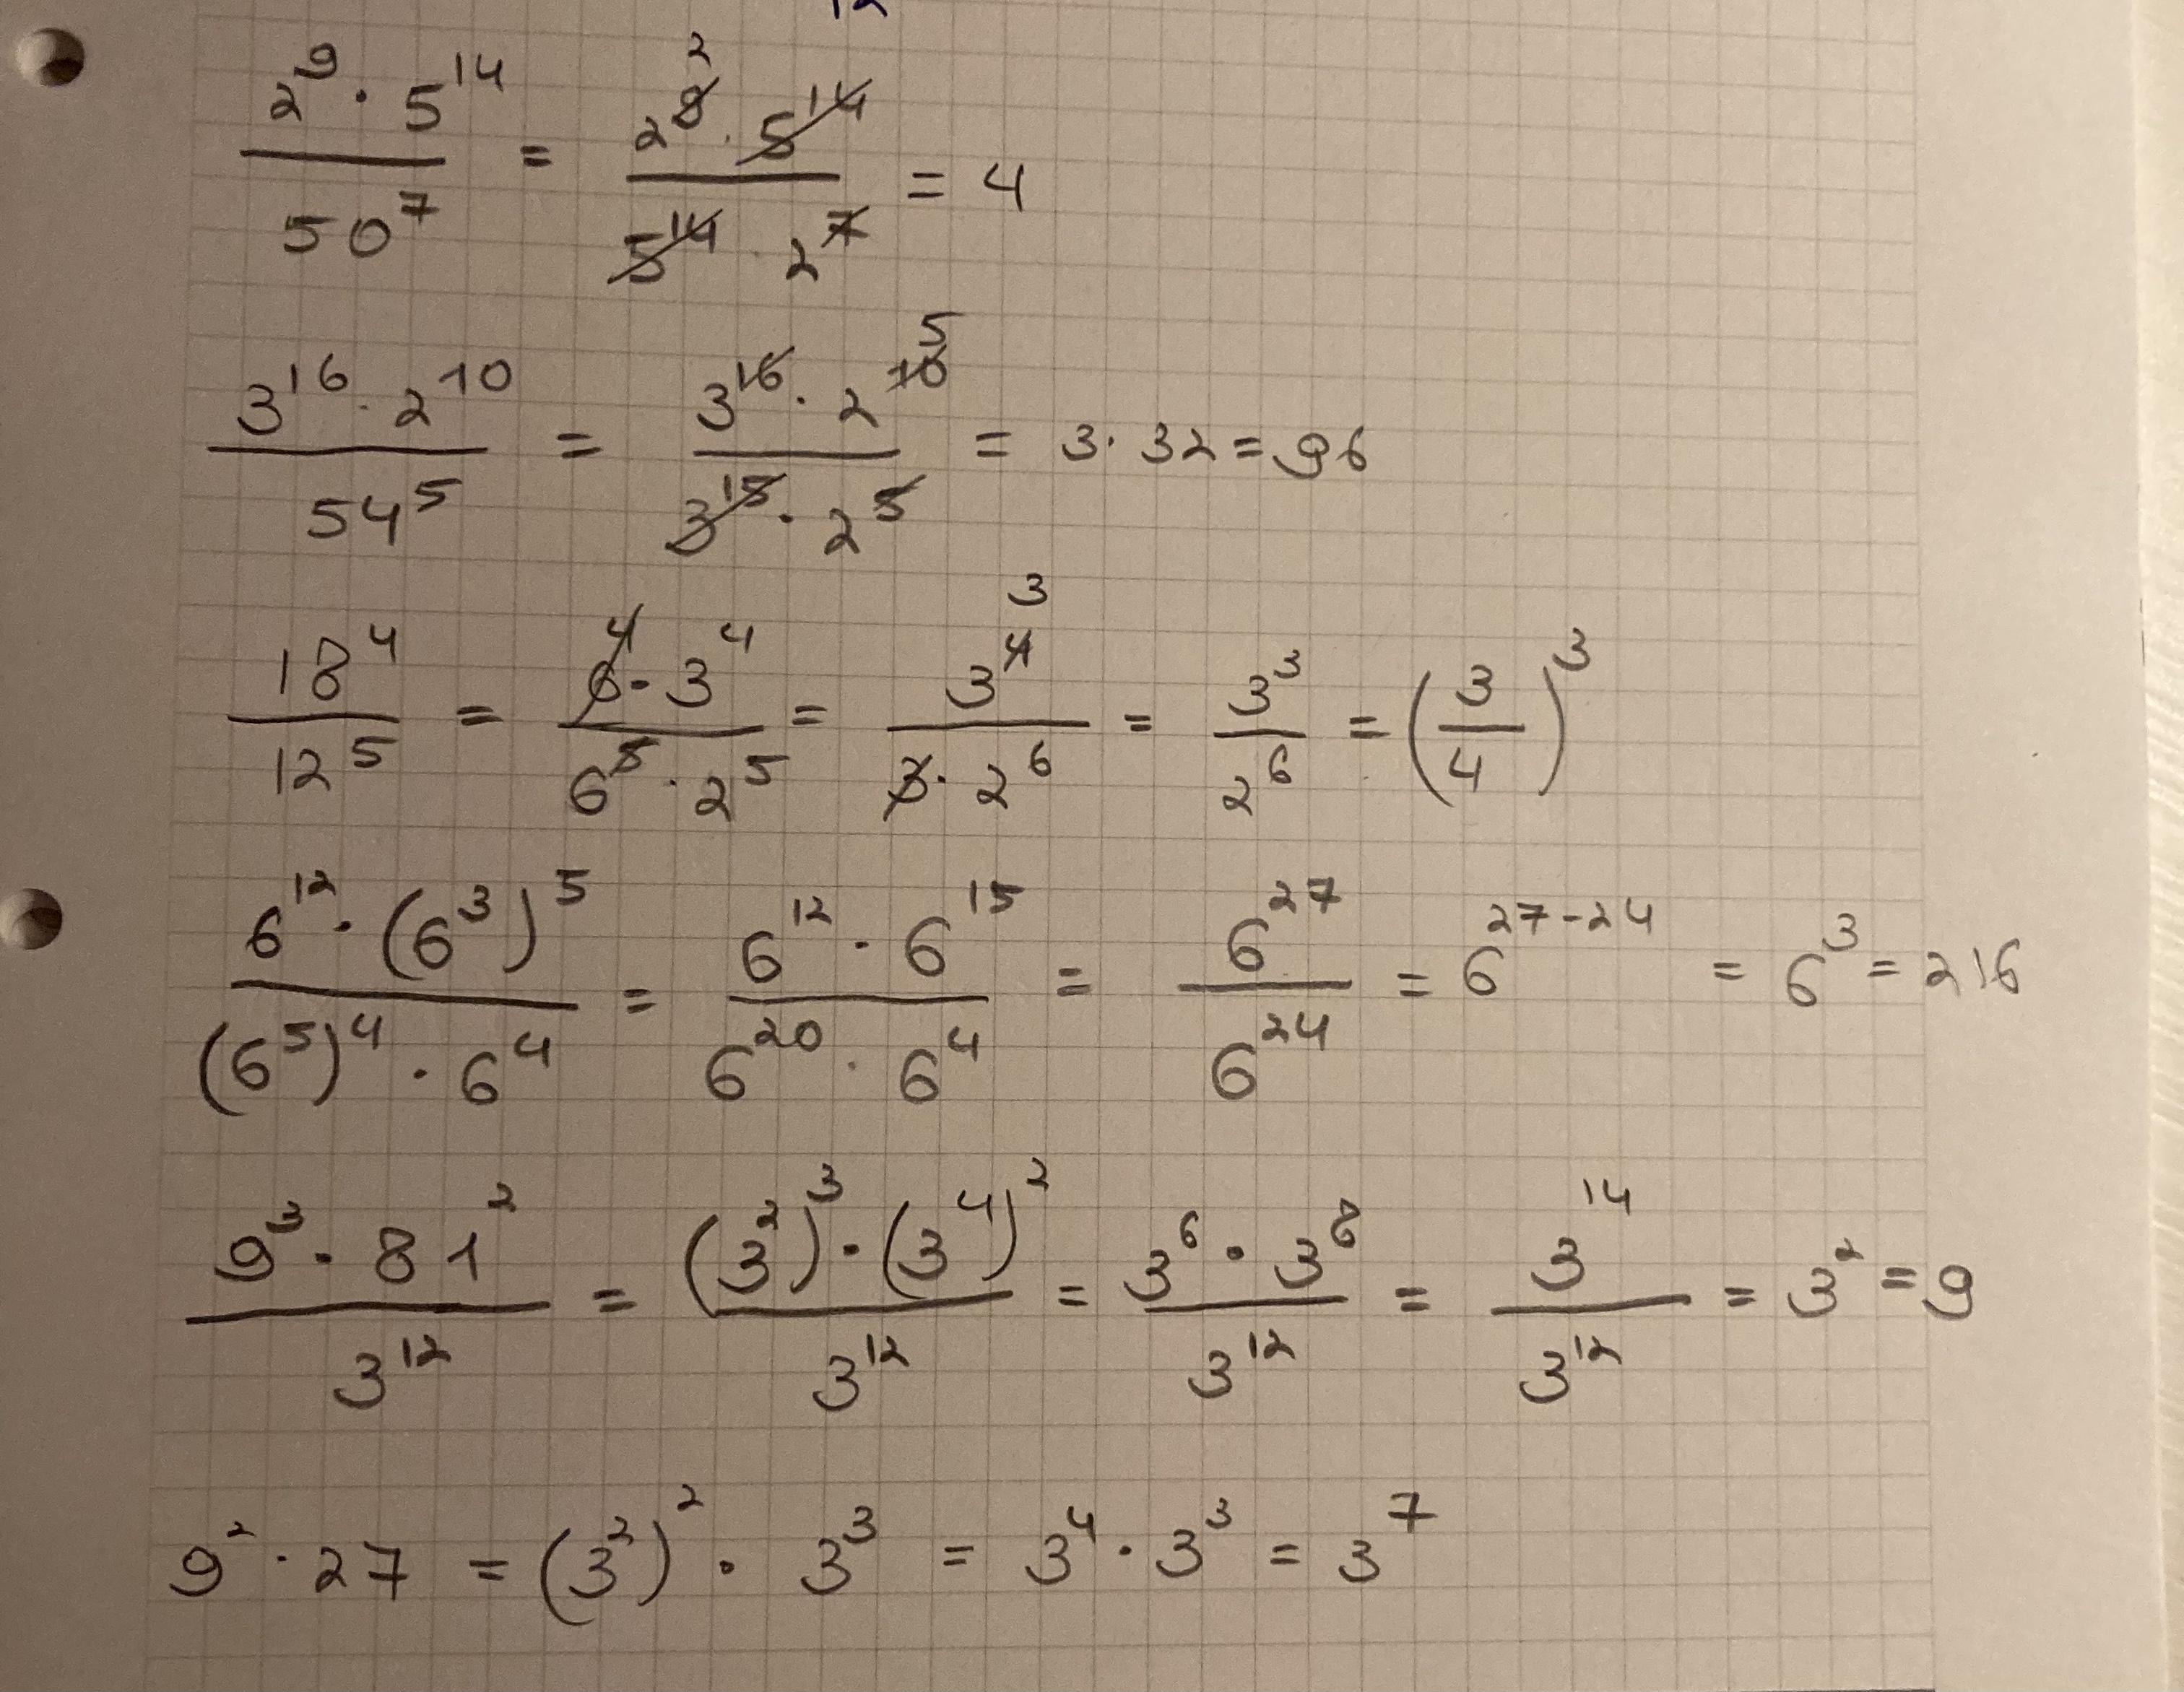 12
2^9 · 5^14 / 50^7 = 2^9 ^2 · 5^14 / 5^14 · 2^7 = 4
3^16 · 2^10 / 54^5 = 3^16 · 2^10 ^5 / 3^15 · 2^5 = 3 · 32 = 96
18^4 / 12^5 = 6^4 · 3^4 / 6^5 · 2^5 = 3^4 ^3 / 3 · 2^6 = 3^3 / 2^6 = (3/4)^3
6^12 · (6^3)^5 / (6^5)^4 · 6^4 = 6^12 · 6^15 / 6^20 · 6^4 = 6^27 / 6^24 = 6^27-24 = 6^3 = 216
9^3 · 81^2 / 3^12 = (3^2)^3 · (3^4)^2 / 3^12 = 3^6 · 3^8 / 3^12 = 3^14 / 3^12 = 3^2 = 9
9^2 · 27 = (3^2)^2 · 3^3 = 3^4 · 3^3 = 3^7